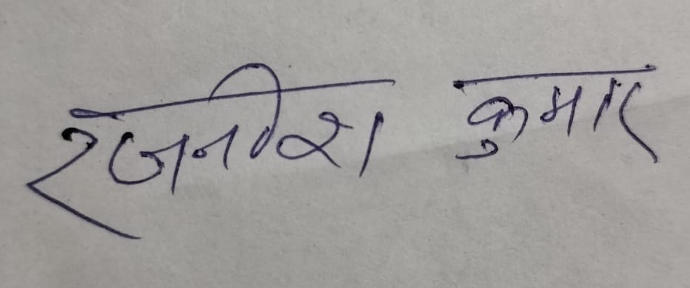 रजनीश कुमार